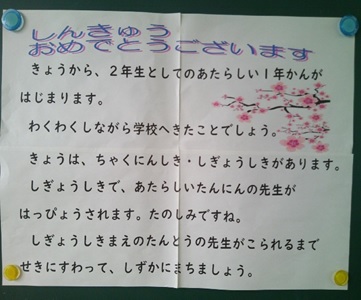 しんきゅう
おめでとうございます
きょうから、２年生としてのあたらしい１年かんが
はじまります。
わくわくしながら学校へきたことでしょう。
きょうは、ちゃくにんしき・しぎょうしきがあります。
しぎょうしきで、あたらしいたんにんの先生が
はっぴょうされます。たのしみですね。
しぎょうしきまえのたんとうの先生がこられるまで
せきにすわって、しずかにまちましょう。